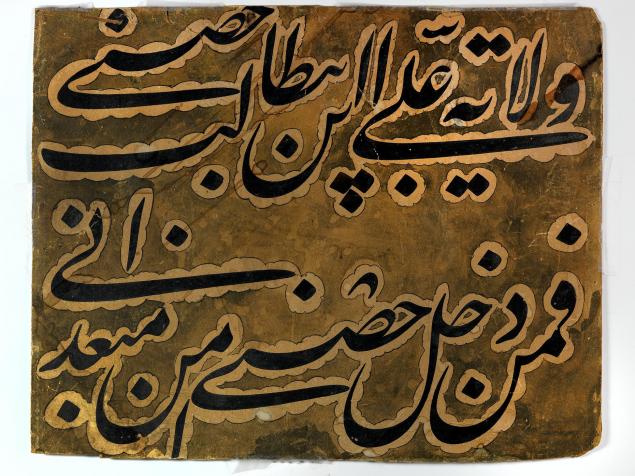 ولایة علی ابن ابیطالب حصنی
فمن دخل حصنی امن من عذابی